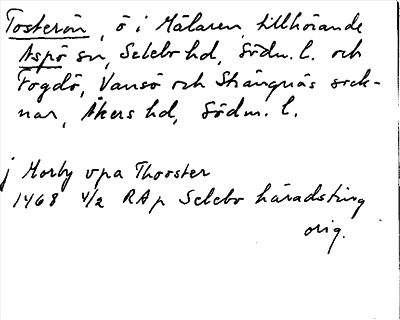 Tosterön, ö i Mälaren, tillhörande
Aspö sn, Selebo hd, Södm. l. och
Fogdö, Vansö och Strängnäs sock-
nar, Åkers hd, Södm. l.
j Morby vpa Thooster
1468 4/2 RAp Selebo häradsting
orig.